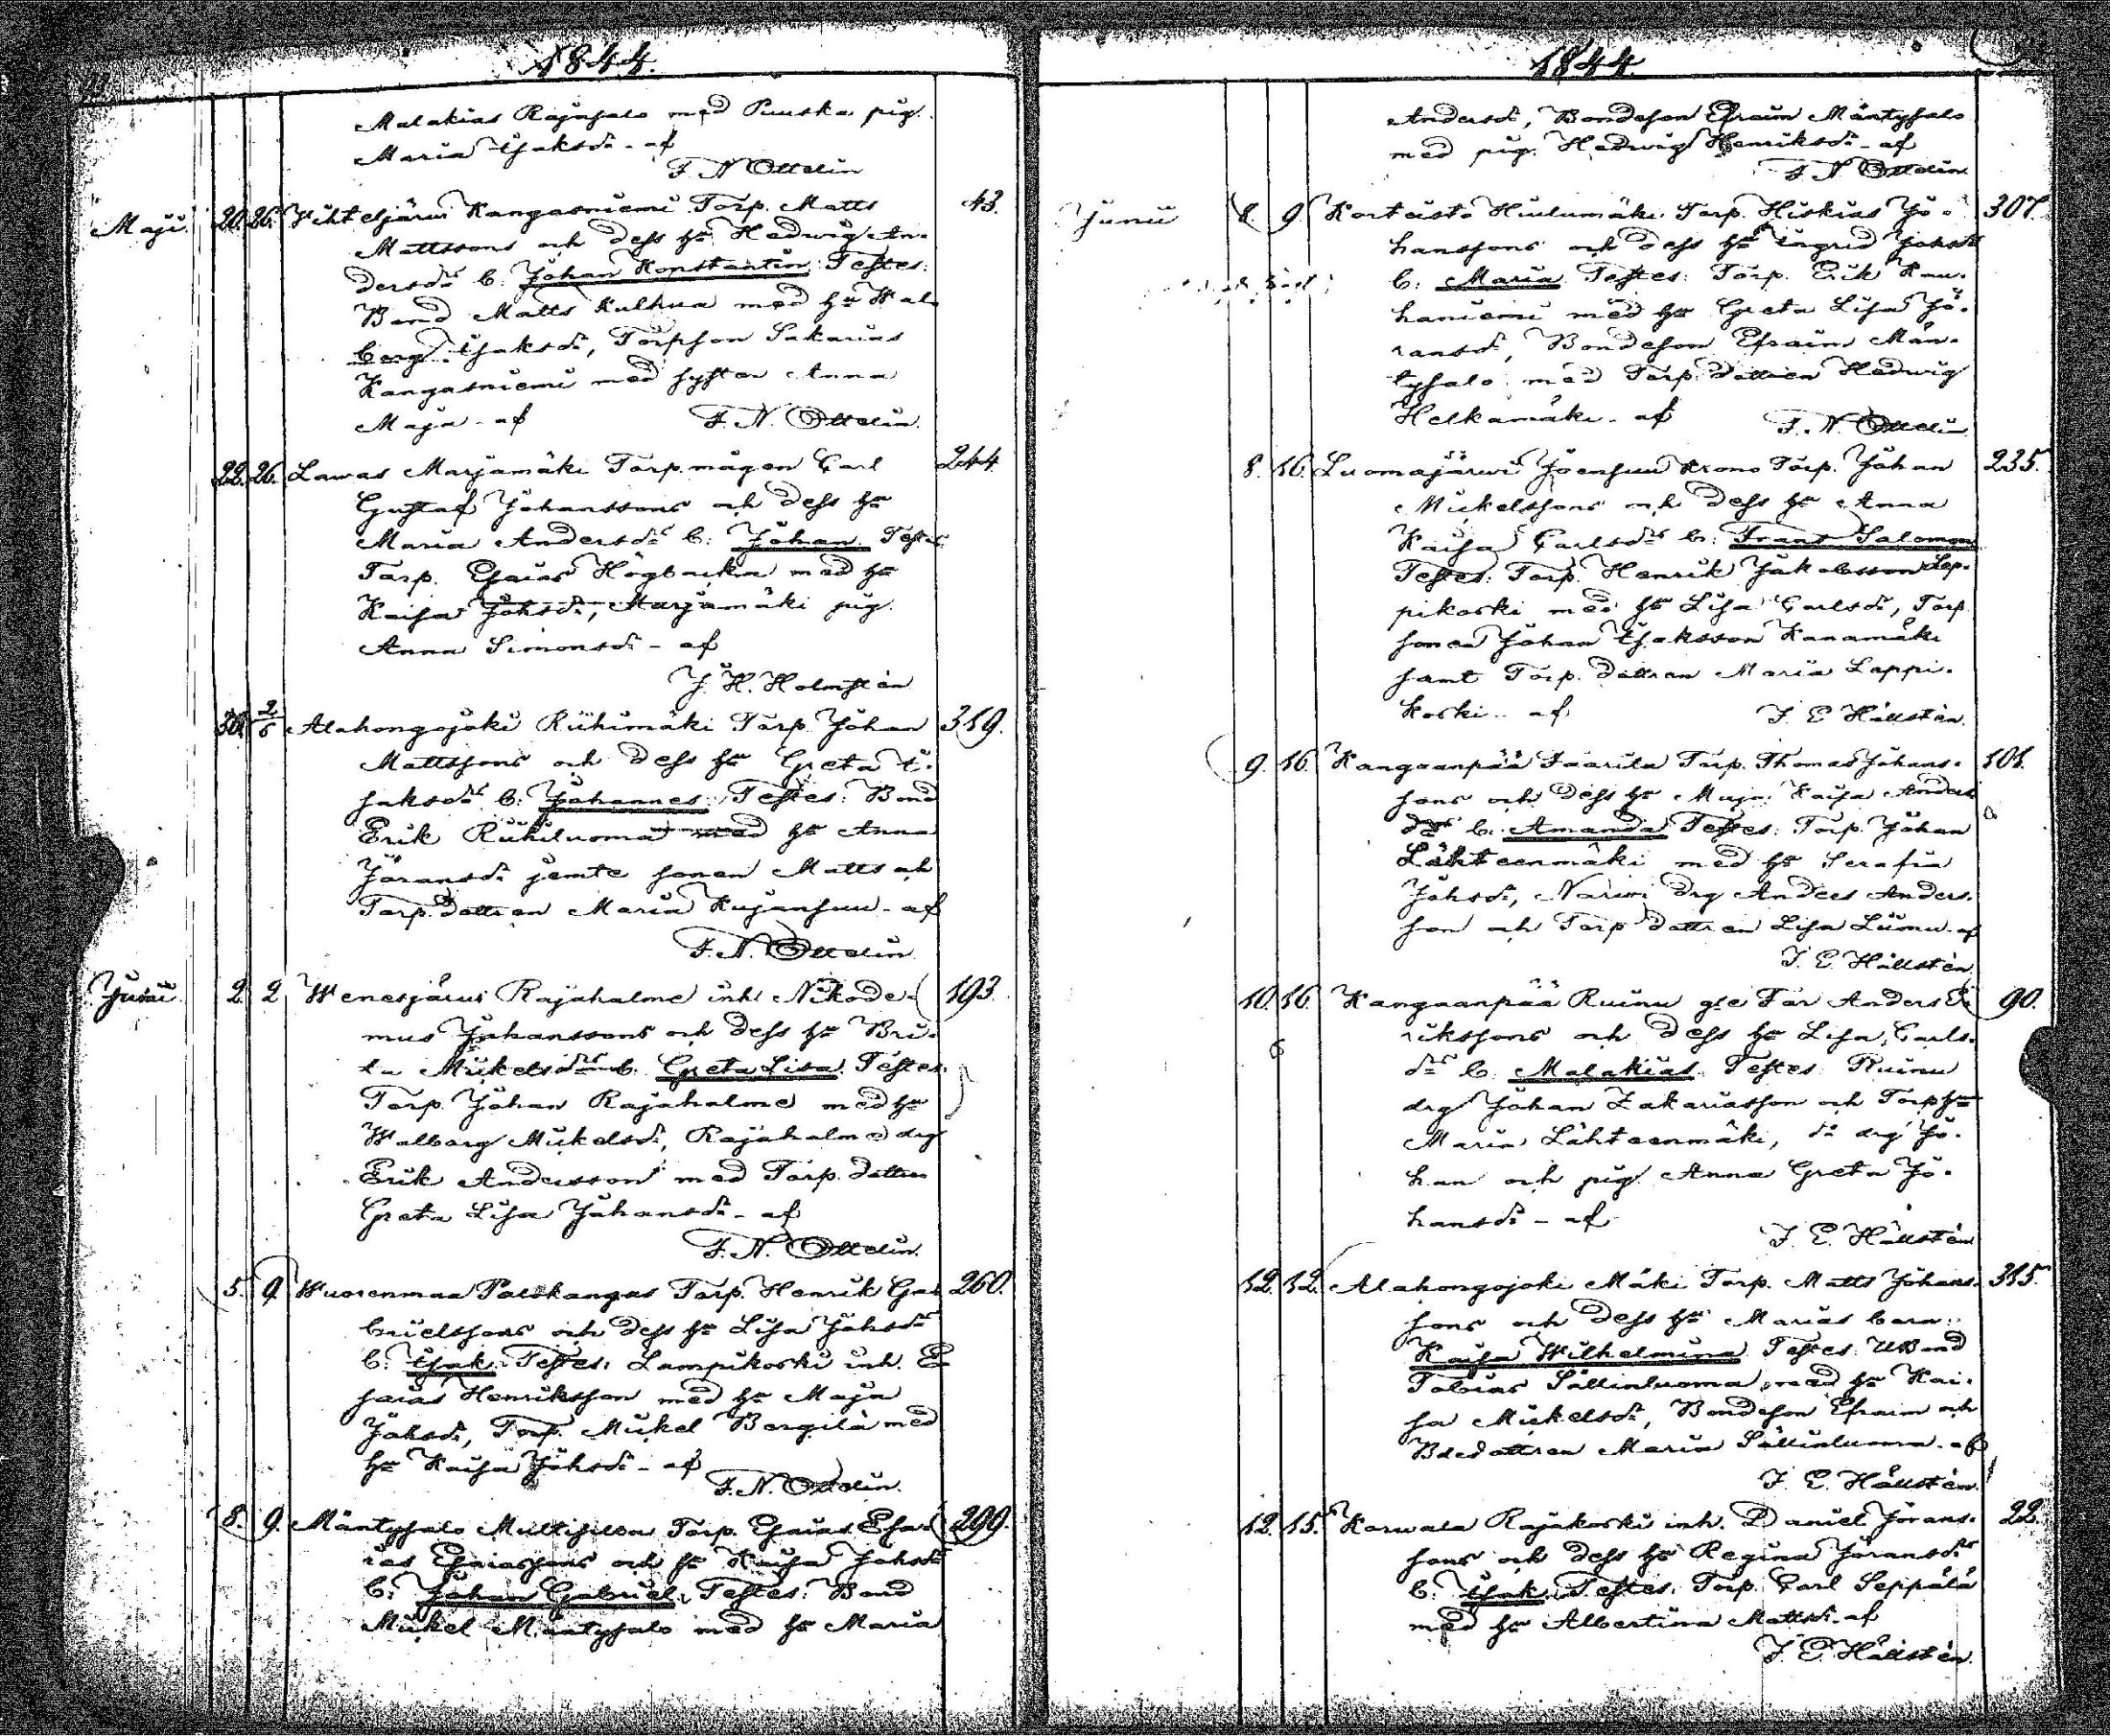 1844.
Malakias Rajasalo med Puuska pig.
Maria Isaksdr - af
F. N. Ottelin
Maji 20. 26. Wihteljärwi Kangasniemi Torp. Matts 43.
Mattssons och dess hu Hedwig An-
dersdrs b. Johan Konstantin Testes:
Bond Matts Kulhua med hu Wal-
borg Isaksdr, Torpson Sakarias
Kangasniemi med syster Anna
Maja - af F. N. Ottelin.
22. 26. Lawas Marjamäki Torp.mågen Carl 244
Gustaf Johanssons och dess hu
Maria Andersdrs b: Johan Testes
Torp. Esaias Högbacka med hu
Kaisa Johsdr, Marjamäki pig.
Anna Simonsdr - af
J. H. Holmstén
30. 2/6 Alahongojoki Riihimäki Torp Johan 319.
Mattssons och dess hu Greta I-
saksdrs b: Johannes Testes: Bond
Erik Riihiluoma med hu Anna
Jöransdr jemte sonen Matts och
Torp.dottren Maria Kujansuu - af
F. N. Ottelin
Junii 2. 2 Wenesjärwi Rajahalme inh Nikode- 193.
mus Johanssons och dess hu Bri-
ta Mickelsdrs b. Greta Lisa Testes.
Torp Johan Rajahalme med hu
Walborg Mickelsdr, Rajahalme drg
Erik Andersson med Torp.dottren
Greta Lisa Johansdr - af
F. N. Ottelin.
5. 9. Wuorenmaa Palokangas Torp. Henrik Ga- 260.
brielssons och dess hu Lisa Johsdrs
b: Isak Testes: Lampikoski inh. E-
saias Henriksson med hu Maja
Johsdr, Torp. Mickel Bergilä med
hu Kaisa Johsdr - af
F. N. Ottelin.
8. 9. Mäntysalo Multisilta Torp. Esaias Esa- 299.
ias Esaiassons och hu Kaisa Johsdrs
b: Johan Gabriel, Testes: Bond
Mickel Mäntysalo med hu Maria
1844.
Andersdr, Bondeson Efraim Mäntysalo
med pig. Hedwig Henriksdr - af
F. N. Ottelin
Junii 8. 9. Hiulumäki Torp. Hiskias Jo- 307.
hanssons och dess hu Ingrid Johsdrs
b: Maria Testes: Torp. Erik Kau-
haniemi med hu Greta Lisa Jö-
ransdr, Bondeson Efraim Män-
tysalo med Torp.dottren Hedwig
Helkamäki - af F. N. Ottelin
8. 16. Luomajärwi Joensuu Krono Torp. Johan 235.
Mickelssons och dess hu Anna
Kaisa Carlsdrs b: Frans Salomon
Testes: Torp. Henrik Jakobsson Lep-
pikoski med hu Lisa Carlsdr, Torp.
sonen Johan Isaksson Kanamäki
samt Torp.dottren Maria Lappi-
koski - af J. E. Hällstén.
9. 16. Kangaanpää Faarila Torp. Thomas Johans- 101.
sons och dess hu Maja Kaisa Anders
drs b. Amanda Testes: Torp. Johan
Lähteenmäki med hu Serafia
Johsdr, Narwi drg Anders Anders-
son och Torp dottren Lisa Liinu - af
J. E. Hällstén.
10. 16. Kangaanpää Ruinu gle Far Anders E- 90.
rikssons och dess hu Lisa Carls-
drs b. Malakias Testes Ruinu
drg Johan Zakariasson och Torphu
Maria Lähteenmäki, do drg Jo-
han och pig Anna Greta Jo-
hansdr - af
J. E. Hällstén
12. 12. Alahongojoki Mäki Torp. Matts Johans- 315.
sons och dess hu Marias barn:
Kaisa Wilhelmina Testes: Bond
Tobias Sällinluoma med hu Kai-
sa Mickelsdr, Bondeson Efraim och
Bdedottren Maria Sällinluoma - af
J. E. Hällstén
12. 15. Karwala Rajakoski inh. Daniel Jörans- 22.
sons och dess hu Regina Jöransdrs
b. Isak Testes. Torp. Carl Seppälä
med hu Albertina Mattsdr - af
J. E. Hällstén